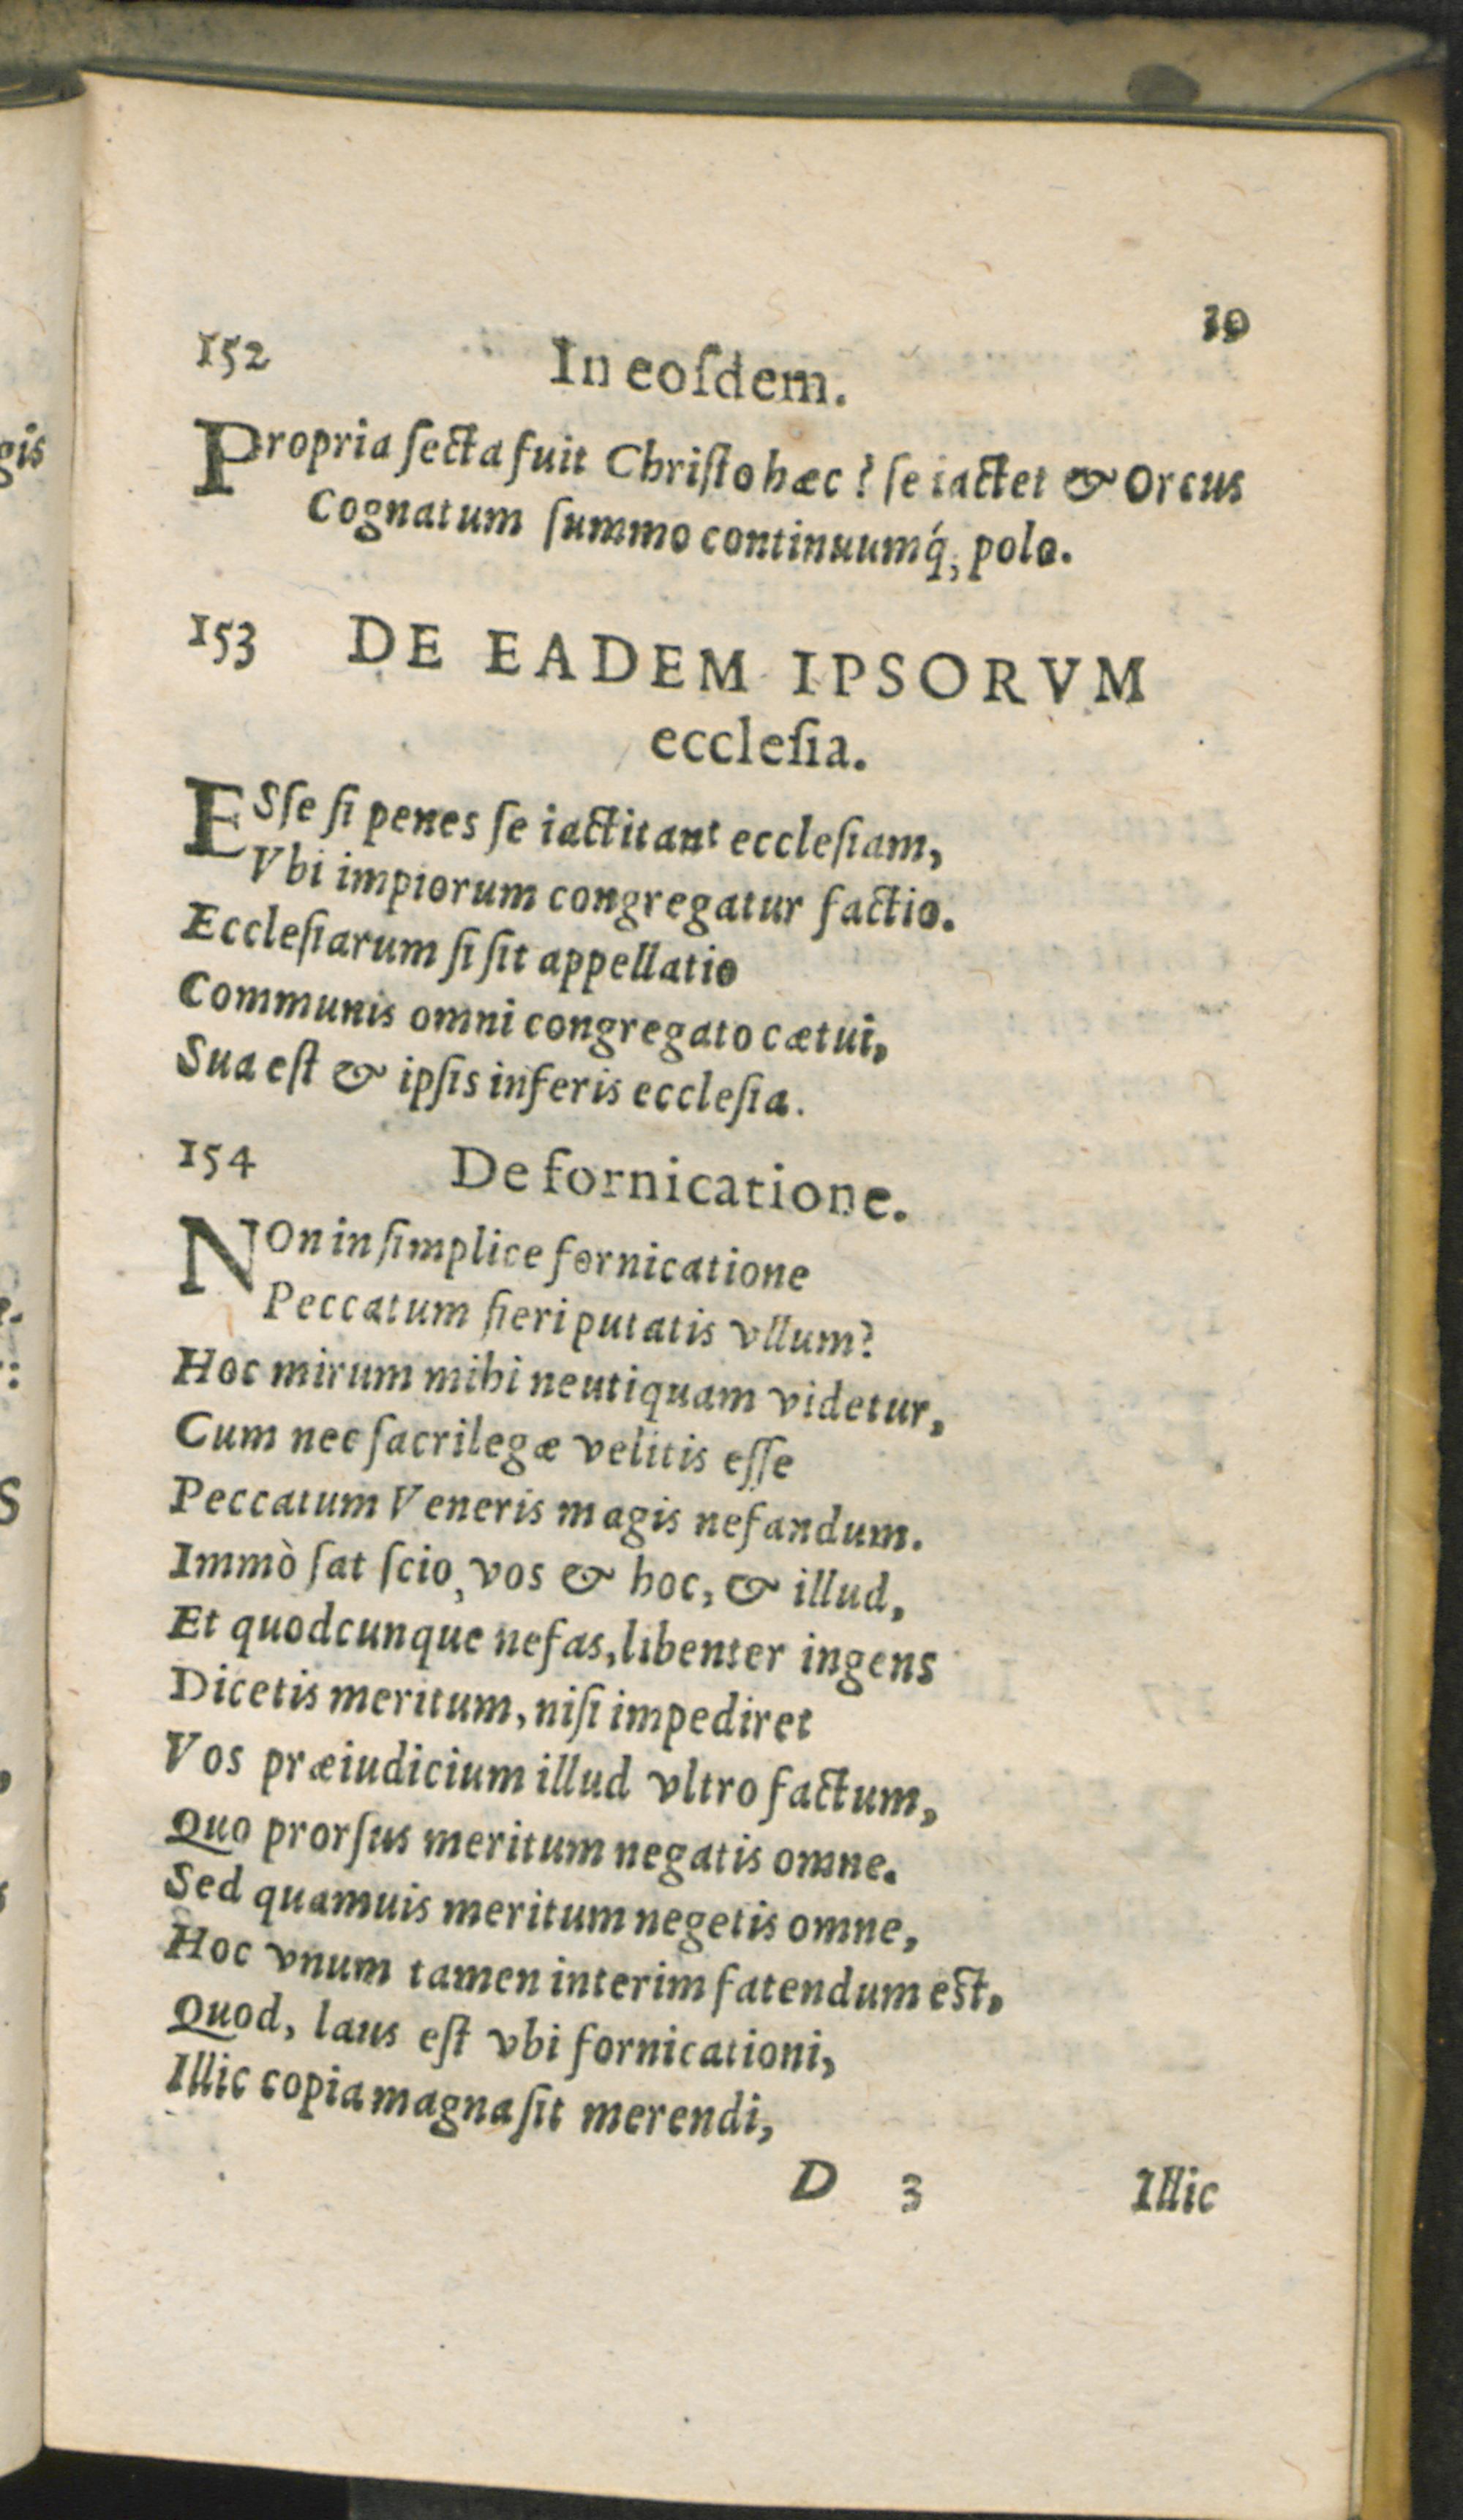 10
152 In eoſdem.
Propria ſecta fuit Chriſto hæc? ſe iactet & Orcus
Cognatum ſummo continuumq́; polo.
153 DE EADEM IPSORVM
eccleſia.
ESſe ſi penes ſe iactitant eccleſiam,
Vbi impiorum congregatur factio.
Eccleſiarum ſi ſit appellatio
Communis omni congregato cætui,
Sua eſt & ipſis inferis eccleſia.
154 De fornicatione.
NOn in ſimplice fornicatione
Peccatum fieri putatis vllum?
Hoc mirum mihi neutiquam videtur,
Cum nec ſacrilegæ velitis eſſe
Peccatum Veneris magis nefandum.
Immò ſat ſcio, vos & hoc, & illud,
Et quodcunque nefas, libenter ingens
Dicetis meritum, niſi impediret
Vos præiudicium illud vltro factum,
Quo prorſus meritum negatis omne.
Sed quamuis meritum negetis omne,
Hoc vnum tamen interim fatendum eſt,
Quod, laus eſt vbi fornicationi,
Illic copia magna ſit merendi,
D 3 Illic